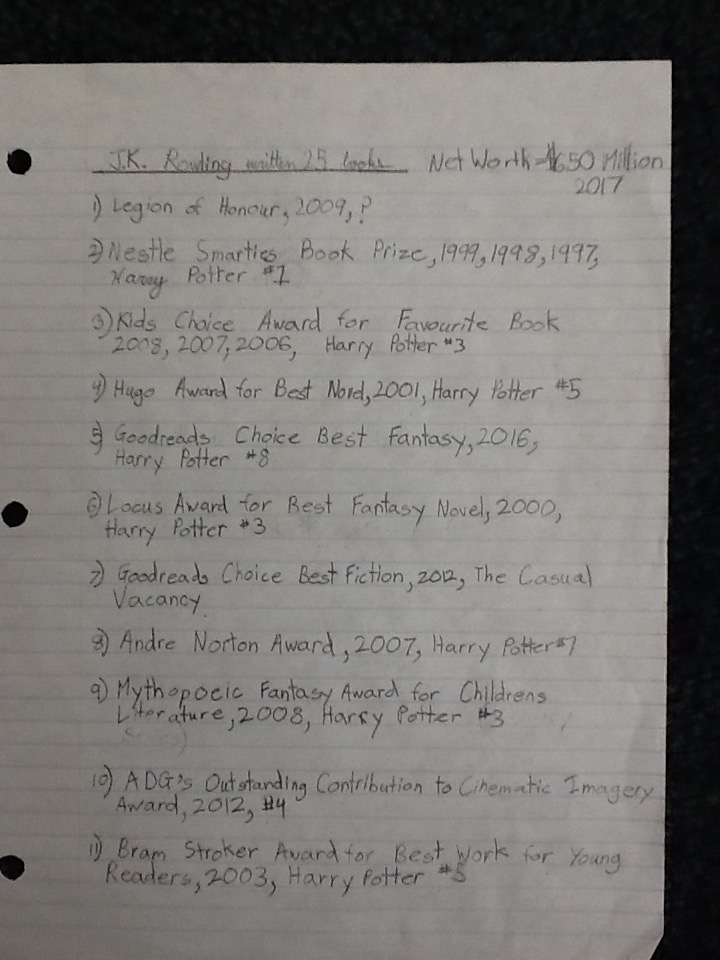 J.K. Rowling written 25 books Net Worth=$650 Million
2017
1) Legion of Honour, 2009, ?
2) Nestle Smarties Book Prize, 1999, 1998, 1997,
Harry Potter #1
3) Kids Choice Award for Favourite Book
2008, 2007, 2006, Harry Potter #3
4) Hugo Award for Best Novel, 2001, Harry Potter #5
5) Goodreads Choice Best Fantasy, 2016,
Harry Potter #8
6) Locus Award for Best Fantasy Novel, 2000,
Harry Potter #3
7) Goodreads Choice Best Fiction, 2012, The Casual
Vacancy
8) Andre Norton Award, 2007, Harry Potter #7
9) Mythopoeic Fantasy Award for Childrens
Literature, 2008, Harry Potter #3
10) ADG's Outstanding Contribution to Cinematic Imagery
Award, 2012, #4
11) Bram Stroker Award for Best Work for Young
Readers, 2003, Harry Potter #5